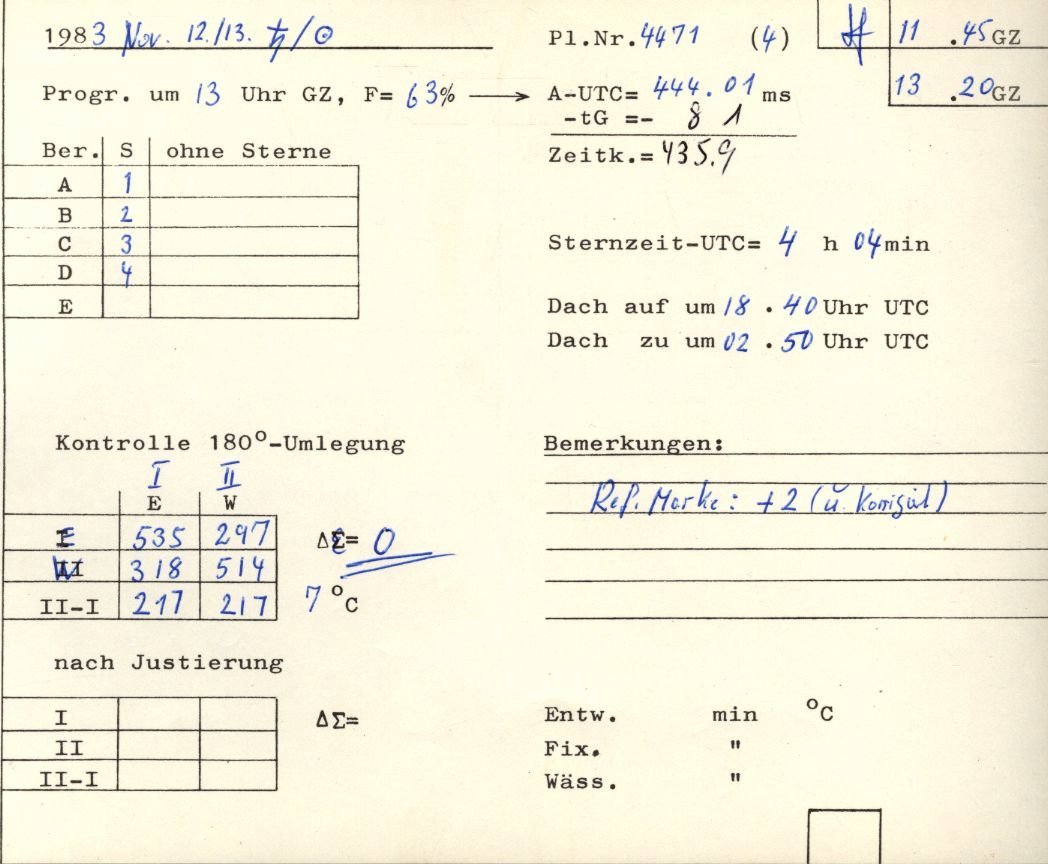 1983 Nov. 12./13. ♄/☉ Pl.Nr.4471 (4) 11 .45GZ
Progr. um 13 Uhr GZ, F= 63% → A-UTC= 444.01 ms 13 .20GZ
-tG =- 8 1
Ber. S ohne Sterne Zeitk.= 435.9
A 1
B 2
C 3 Sternzeit-UTC= 4 h 04min
D 4
E Dach auf um 18 . 40 Uhr UTC
Dach zu um 02 . 50 Uhr UTC
Kontrolle 180°-Umlegung Bemerkungen:
I II
E W Ref. Marke: +2 (ü. korrigiert)
E 535 297 ΔΣ= 0
W 318 514
II-I 217 217 7 °C
nach Justierung
I ΔΣ= Entw. min °C
II Fix. "
II-I Wäss. "